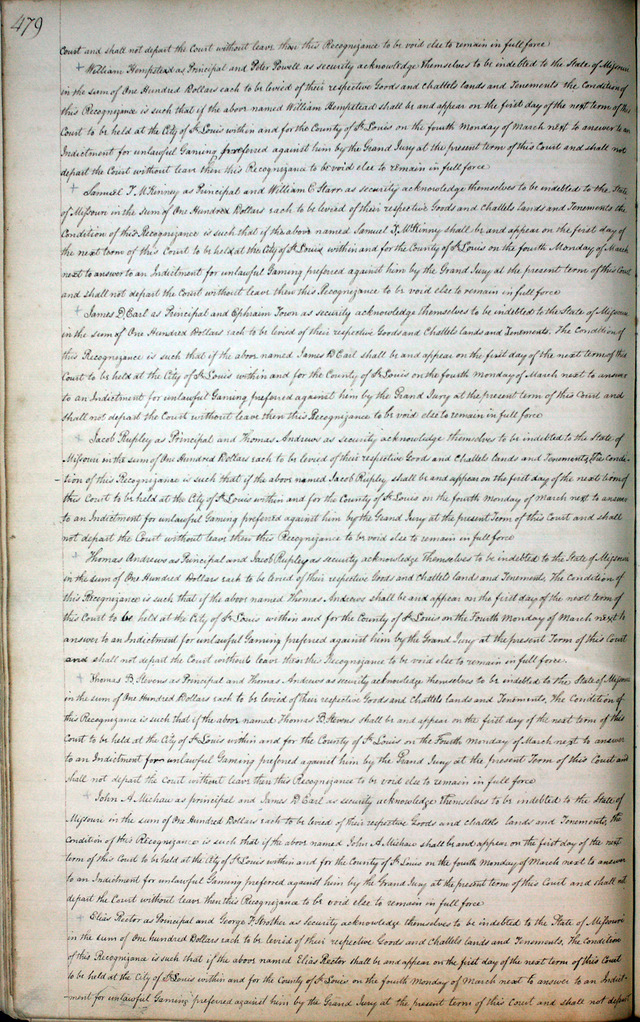 479
Court and shall not depart the Court without leave then this Recognizance to be void else to remain in full force
+ William Hempstead as Principal and Peter Powell as security acknowledge themselves to be indebted to the State of Missouri
in the sum of One Hundred Dollars each to be levied of their respective Goods and Chattels lands and Tenements the Condition of
this Recognizance is such that if the above named William Hempstead shall be and appear on the first day of the next term of this
Court to be held at the City of St. Louis within and for the County of St. Louis on the fourth Monday of March next to answer to an
Indictment for unlawful Gaming preferred against him by the Grand Jury at the present term of this Court and shall not
depart the Court without leave then this Recognizance to be void else to remain in full force
+ Samuel T. McKinney as Principal and William C Starr as security acknowledge themselves to be indebted to the State
of Missouri in the sum of One Hundred Dollars each to be levied of their respective Goods and Chattels lands and Tenements the
Condition of this Recognizance is such that if the above named Samuel T. McKinny shall be and appear on the first day of
the next term of this Court to be held at the City of St. Louis within and for the County of St Louis on the fourth Monday of March
next to answer to an Indictment for unlawful Gaming prefered against him by the Grand Jury at the present term of this Court
and shall not depart the Court without leave then this Recognizance to be void else to remain in full force
+ James D. Earl as Principal and Ephraim Town as security acknowledge themselves to be indebted to the State of Missouri
in the sum of One Hundred Dollars each to be levied of their respective Goods and Chattels lands and Tenements. The Condition of
this Recognizance is such that if the above named James D Earl shall be and appear on the first day of the next term of this
Court to be held at the City of St. Louis within and for the County of St Louis on the fourth Monday of March next to answer
to an Indictment for unlawful Gaming preferred against him by the Grand Jury at the present term of this Court and
shall not depart the Court without leave then this Recognizance to be void else to remain in full force
+ Jacob Rupley as Principal and Thomas Andrews as security acknowledge themselves to be indebted to the State of
Missouri in the sum of One Hundred Dollars each to be levied of their respective Goods and Chattels lands and Tenements, The Condi-
-tion of this Recognizance is such that if the above named Jacob Rupley shall be and appear on the first day of the next term of
this Court to be held at the City of St Louis within and for the County of St Louis on the fourth Monday of March next to answer
to an Indictment for unlawful Gaming preferred against him by the Grand Jury at the present Term of this Court and shall
not depart the Court without leave then this Recognizance to be void else to remain in full force
+ Thomas Andrews as Principal and Jacob Rupley as security acknowledge themselves to be indebted to the State of Missouri
in the sum of One Hundred Dollars each to be levied of their respective Goods and Chattels lands and Tenements, The Condition of
this Recognizance is such that if the above named Thomas Andrews shall be and appear on the first day of the next term of
this Court to be held at the City of St Louis within and for the County of St Louis on the Fourth Monday of March next to
answer to an Indictment for unlawful Gaming preferred against him by the Grand Jury at the present Term of this Court
and shall not depart the Court without leave then this Recognizance to be void else to remain in full force.
+ Thomas B. Stevens as Principal and Thomas Andrews as security acknowledge themselves to be indebted to the State of Missouri
in the sum of One Hundred Dollars each to be levied of their respective Goods and Chattels lands and Tenements, The Condition of
this Recognizance is such that if the above named Thomas B Stevens shall be and appear on the first day of the next term of this
Court to be held at the City of St Louis within and for the County of St. Louis on the Fourth Monday of March next to answer
to an Indictment for unlawful Gaming preferred against him by the Grand Jury at the present Term of this Court and
shall not depart the Court without leave then this Recognizance to be void else to remain in full force
+ John A Michau as principal and James D Earl as security acknowledge themselves to be indebted to the State of
Missouri in the sum of One Hundred Dollars each to be levied of their respective Goods and chattels lands and Tenements, the
Condition of this Recognizance is such that if the above named John A Michau shall be and appear on the first day of the next
term of this Court to be held at the City of St Louis within and for the County of St Louis on the fourth Monday of March next to answer
to an Indictment for unlawful Gaming preferred against him by the Grand Jury at the present term of this Court and shall not
depart the Court without leave then this Recognizance to be void else to remain in full force
+ Elias Rector as Principal and George F. Strother as security acknowledge themselves to be indebted to the State of Missouri
in the sum of One hundred Dollars each to be levied of their respective Goods and Chattels lands and Tenements. The Condition
of this Recognizance is such that if the above named Elias Rector shall be and appear on the first day of the next term of this Court
to be held at the City of St. Louis within and for the County of St Louis on the fourth Monday of March next to answer to an Indict-
-ment for unlawful Gaming preferred against him by the Grand Jury at the present term of this Court and shall not depart